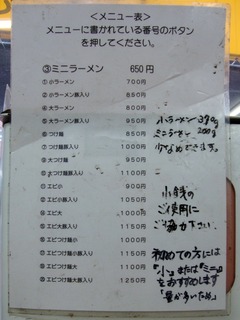 ＜メニュー表＞
メニューに書かれている番号のボタン
を押してください。
③ミニラーメン 650円
①小ラーメン 700円
②小ラーメン豚入り 880円
④大ラーメン 800円
⑤大ラーメン豚入り 950円
⑥つけ麺 850円
⑦つけ麺豚入り 1000円
⑨大つけ麺 950円
⑩大つけ麺豚入り 1100円
⑪エビ小 900円
エビ小豚入り 1050円
エビ大 1000円
エビ大豚入り 1150円
エビつけ麺小 1000円
エビつけ麺小豚入り 1150円
エビつけ麺大 1100円
エビつけ麺大豚入り 1250円
小ラーメン
ミニラーメン 200g
少なめできます。
小銭の
ご使用に
ご協力下さい
初めての方には
"小"または"ミニ"
をおすすめします
「量が多いため」